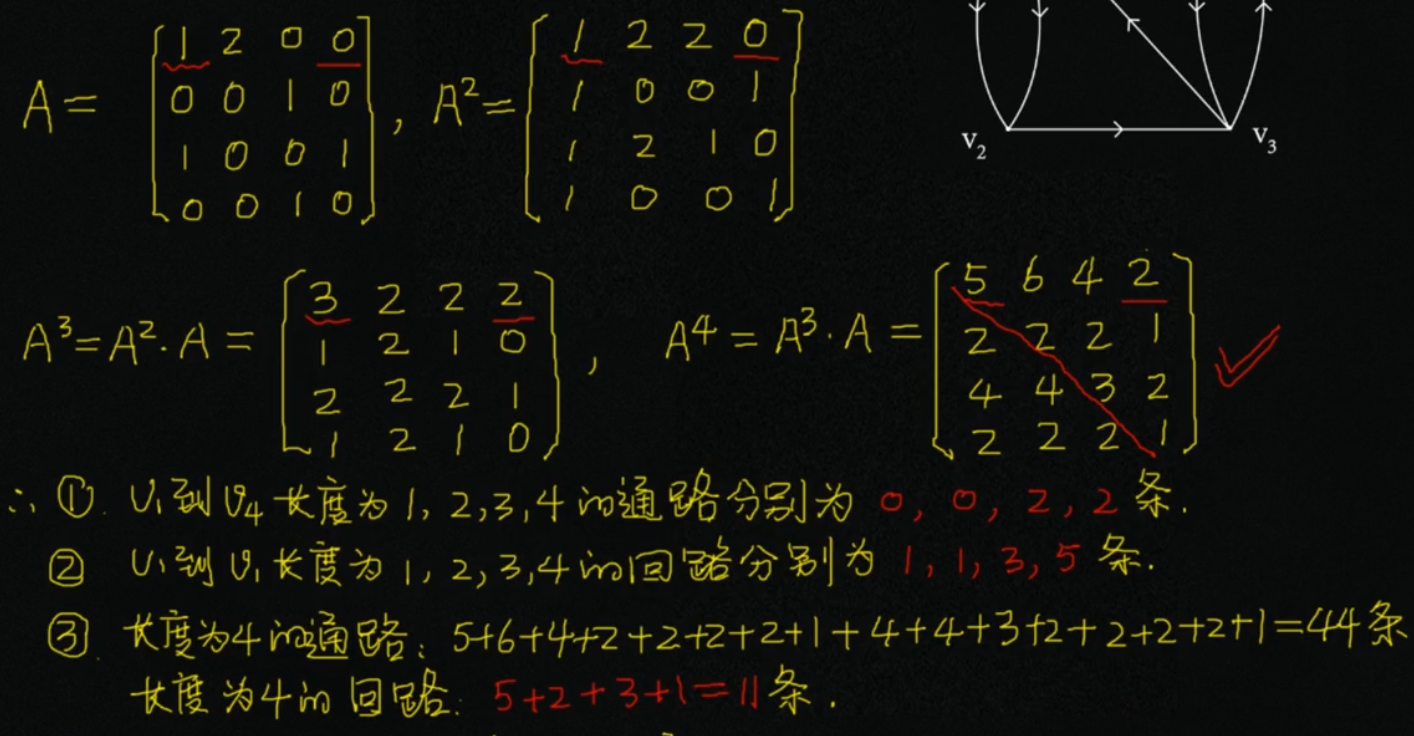 A = [1 2 0 0; 0 0 1 0; 1 0 0 1; 0 0 1 0], A² = [1 2 2 0; 1 0 0 1; 1 2 1 0; 1 0 0 1]
v₂ v₃
A³ = A²·A = [3 2 2 2; 1 2 1 0; 2 2 2 1; 1 2 1 0], A⁴ = A³·A = [5 6 4 2; 2 2 2 1; 4 4 3 2; 2 2 2 1]
∴ ①. v₁到v₄长度为1,2,3,4的通路分别为 0,0,2,2条.
② v₁到v₁长度为1,2,3,4的回路分别为 1,1,3,5条.
③. 长度为4的通路: 5+6+4+2+2+2+2+1+4+4+3+2+2+2+2+1=44条
长度为4的回路: 5+2+3+1=11条.